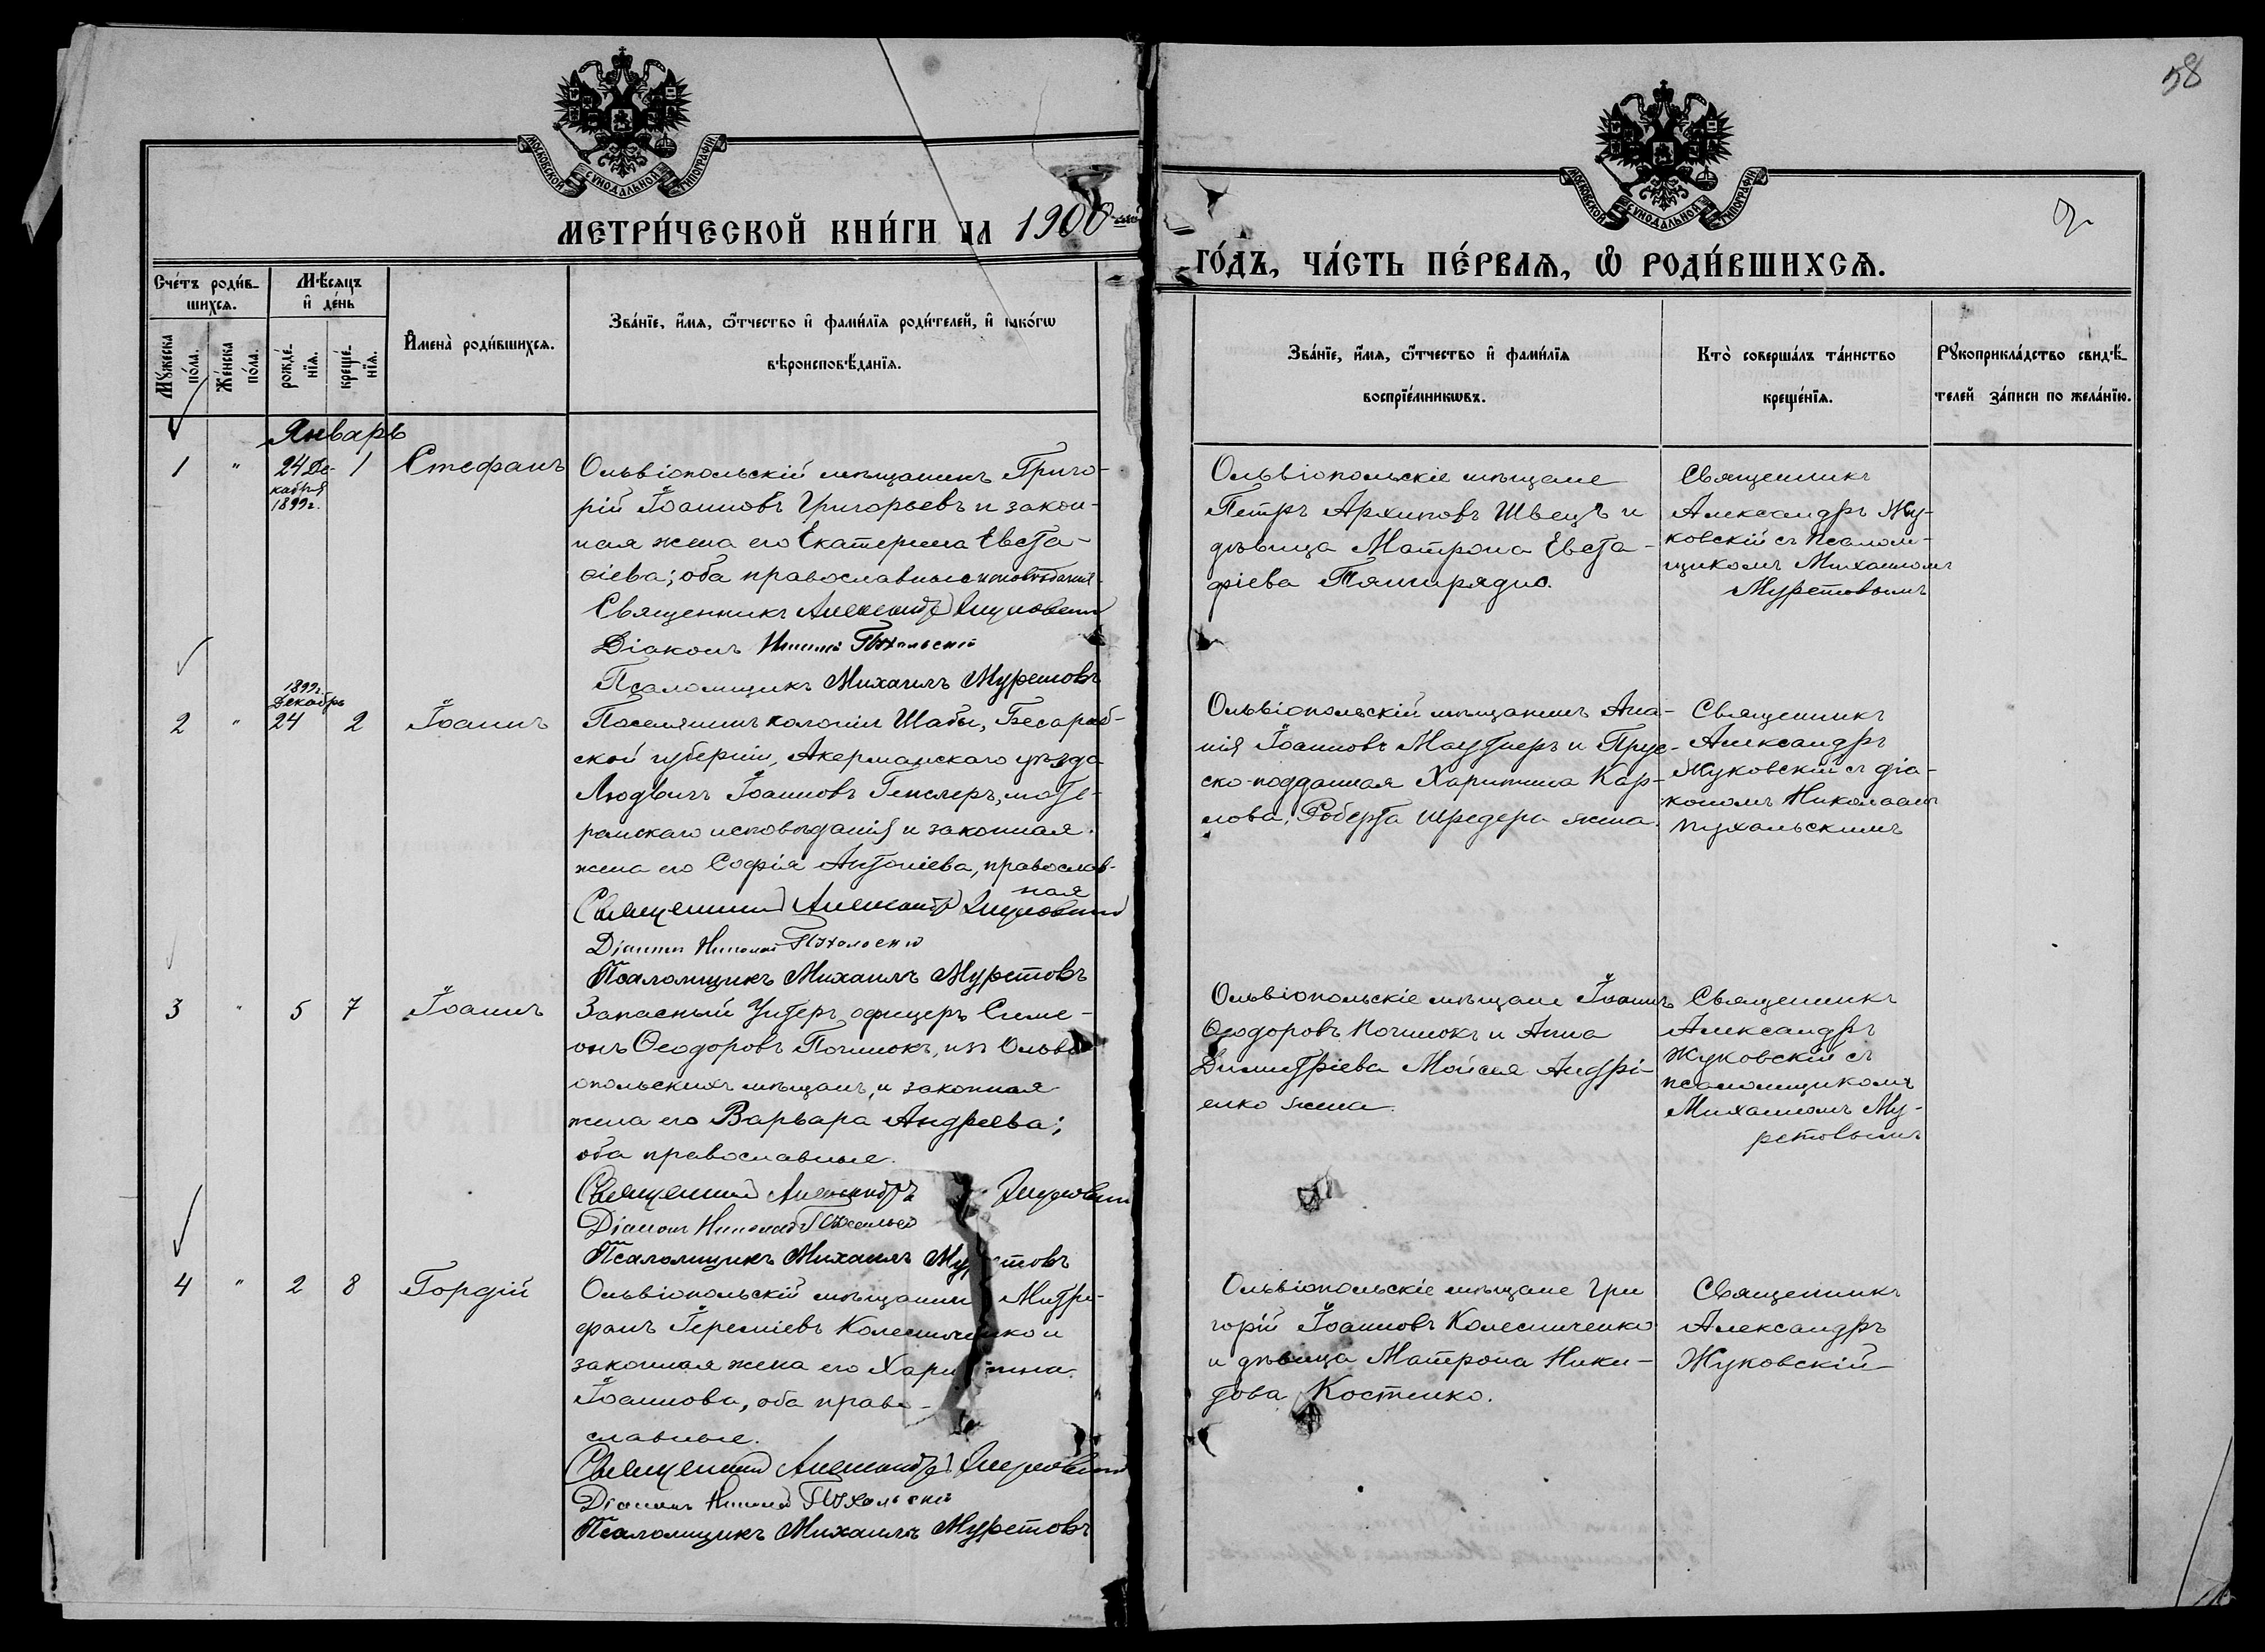 58
МОСКОВСКОЙ СѴНОДАЛЬНОЙ ТИПОГРАФІИ
МОСКОВСКОЙ СѴНОДАЛЬНОЙ ТИПОГРАФІИ
МЕТРИ́ЧЕСКОЙ КНИ́ГИ НА 1900-ый
ГО́ДЪ, ЧА́СТЬ ПЕ́РВАѦ, Ѡ РОДИ́ВШИХСѦ.
Сче́тъ роди́в-
шихсѧ.
Мѣ́сѧцъ
и҆ де́нь
Мꙋ́жеска
по́ла.
Же́нска
по́ла.
рожде́-
нїѧ.
креще́-
нїѧ.
И҆мена̀ роди́вшихсѧ.
Зва́нїе, и҆́мѧ, ѻ҆́тчество и҆ фами́лїѧ роди́телей, и҆ како́гѡ
вѣроисповѣ́данїѧ.
Зва́нїе, и҆́мѧ, ѻ҆́тчество и҆ фами́лїѧ
воспрїе́мникѡвъ.
Кто̀ соверша́лъ та́инство
креще́нїѧ.
Рꙋкоприкла́дство свидѣ́-
телей за́писи по жела́нїю.
Январь
1 " 24 Де-
кабря
1899г.
1 Стефанъ
Ольвіопольскій мѣщанинъ Григо-
рій Іоанновъ Григорьевъ и закон-
ная жена его Екатерина Евста-
фіева; оба православные исповѣданія
Священникъ Александръ Жуковскій
Діаконъ Николай Пухальскій
Псаломщикъ Михаилъ Муретовъ
Ольвіопольскіе мѣщане
Петръ Архиповъ Швецъ и
дѣвица Матрона Евста-
фіева
Священникъ
Александръ Жу-
ковскій съ псалом-
щикомъ Михаиломъ
Муретовымъ
1899г.
Декабрь
2 " 24 2 Іоаннъ
Поселянинъ колоніи Шабы, Бессараб-
ской губерніи, Акерманскаго уѣзда
Людвигъ Іоанновъ Генслеръ, люте-
ранскаго исповѣданія и законная
жена его Софія Антоніева, православ-
ная
Священникъ Александръ Жуковскій
Діаконъ Николай Пухальскій
Псаломщикъ Михаилъ Муретовъ
Ольвіопольскій мѣщанинъ Ана-
нія Іоанновъ и Прус-
ско-подданная Харитина Кар-
лова, Роберта Шредера жена.
Священникъ
Александръ
Жуковскій съ діа-
кономъ Николаемъ
Пухальскимъ
3 " 5 7 Іоаннъ
Запасный Унтеръ офицеръ Симе-
онъ Ѳеодоровъ Починокъ, изъ Ольві
опольскихъ мѣщанъ, и законная
жена его Варвара Андреева;
оба православные.
Священникъ Александръ Жуковскій
Діаконъ Николай Пухальскій
Псаломщикъ Михаилъ Муретовъ
Ольвіопольскіе мѣщане Іоаннъ
Ѳеодоровъ Починокъ и Анна
Димитріева Мойсея Андрі-
енко жена.
Священникъ
Александръ
Жуковскій съ
псаломщикомъ
Михаиломъ Му-
ретовымъ
4 " 2 8 Гордій
Ольвіопольскій мѣщанинъ Митро-
фанъ Іереміевъ Колесниченко и
законная жена его Харитина
Іоаннова, оба право-
славные.
Священникъ Александръ Жуковскій
Діаконъ Николай Пухальскій
Псаломщикъ Михаилъ Муретовъ
Ольвіопольскіе мѣщане Гри
горій Іоанновъ Колесниченко
и дѣвица Матрона Ники-
това Костенко.
Священникъ
Александръ
Жуковскій